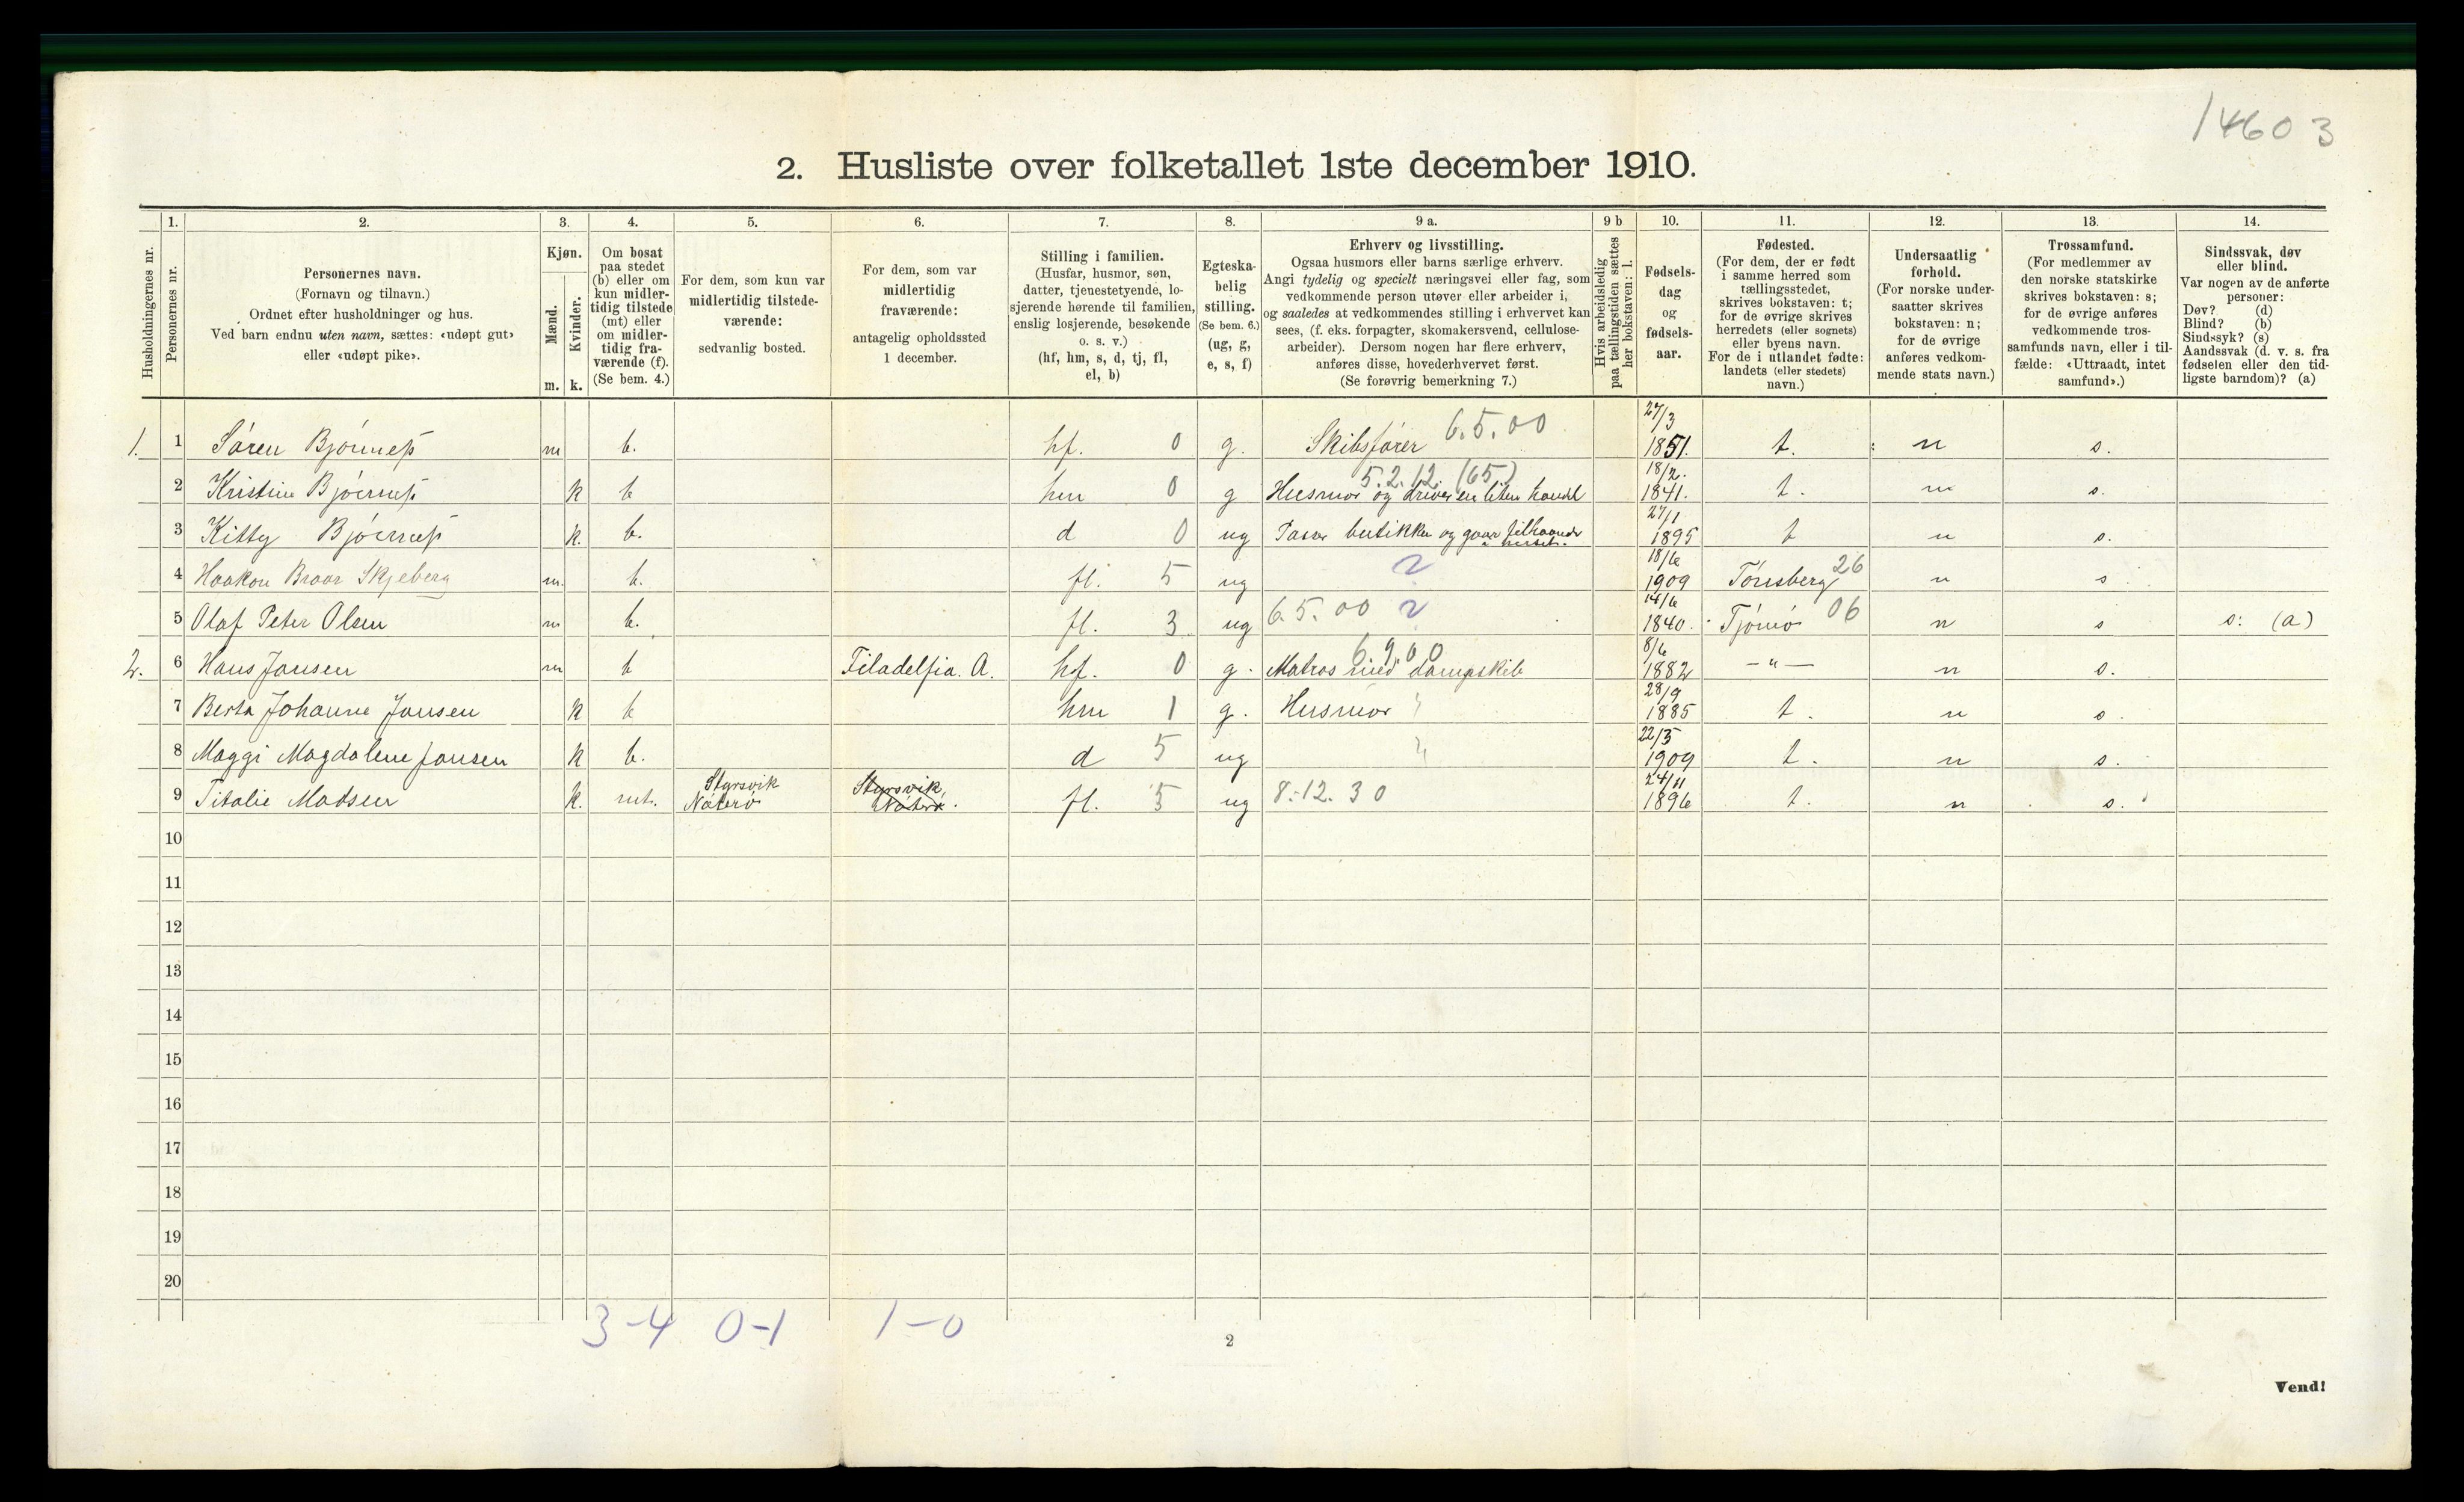 14603
2. Husliste over folketallet 1ste december 1910.
Husholdningernes nr.
1.
Personernes nr.
2.
Personernes navn.
(Fornavn og tilnavn.)
Ordnet efter husholdninger og hus.
Ved barn endnu uten navn, sættes: «udøpt gut»
eller «udøpt pike».
3.
Kjøn.
Mænd.
m.
Kvinder.
k.
4.
Om bosat
paa stedet
(b) eller om
kun midler-
tidig tilstede
(mt) eller
om midler-
tidig fra-
værende (f).
(Se bem. 4.)
5.
For dem, som kun var
midlertidig tilstede-
værende:
sedvanlig bosted.
6.
For dem, som var
midlertidig
fraværende:
antagelig opholdssted
1 december.
7.
Stilling i familien.
(Husfar, husmor, søn,
datter, tjenestetyende, lo-
sjerende hørende til familien,
enslig losjerende, besøkende
o. s. v.)
(hf, hm, s, d, tj, fl,
el, b)
8.
Egteska-
belig
stilling.
(Se bem. 6.)
(ug, g,
e, s, f)
9 a.
Erhverv og livsstilling.
Ogsaa husmors eller barns særlige erhverv.
Angi tydelig og specielt næringsvei eller fag, som
vedkommende person utøver eller arbeider i,
og saaledes at vedkommendes stilling i erhvervet kan
sees, (f. eks. forpagter, skomakersvend, cellulose-
arbeider). Dersom nogen har flere erhverv,
anføres disse, hovederhvervet først.
(Se forøvrig bemerkning 7.)
9 b
Hvis arbeidsledig
paa tællingstiden sættes
her bokstaven: l.
10.
Fødsels-
dag
og
fødsels-
aar.
11.
Fødested.
(For dem, der er født
i samme herred som
tællingsstedet,
skrives bokstaven: t;
for de øvrige skrives
herredets (eller sognets)
eller byens navn.
For de i utlandet fødte:
landets (eller stedets)
navn.)
12.
Undersaatlig
forhold.
(For norske under-
saatter skrives
bokstaven: n;
for de øvrige
anføres vedkom-
mende stats navn.)
13.
Trossamfund.
(For medlemmer av
den norske statskirke
skrives bokstaven: s;
for de øvrige anføres
vedkommende tros-
samfunds navn, eller i til-
fælde: «Uttraadt, intet
samfund».)
14.
Sindssvak, døv
eller blind.
Var nogen av de anførte
personer:
Døv? (d)
Blind? (b)
Sindssyk? (s)
Aandssvak (d. v. s. fra
fødselen eller den tid-
ligste barndom)? (a)
1. 1 Sören Bjönness m b. hf. 0 g. Skibsfører 6.5.00 27/3 1851. t. n s.
2 Kristine Bjönness k b hm 0 g Husmor og driver en liten handel 5.2.12 (65) 18/2. 1841. t. n s.
3 Kitty Bjönness k. b. d 0 ug Passer butikken og gaar tilhaande i huset. 27/11 1895 t n s.
4 Haakon Skjeberg m. b. fl. 5 ug 18/6 1909 Tönsberg 26 n s
5 Olaf Peter Olsen m b. fl. 3 ug 6.5.00 14/6 1840. Tjömö 06 n s s: (a)
2. 6 Hans Jansen m b Filadelfia. A. hf. 0 g. Matros med dampskib 6.9.00 8/6 1882 -"- n s.
7 Berta Johanne Jansen k b hm 1 g. Husmor 28/9 1885 t. n s.
8 Maggi Magdalene Jansen k b. d 5 ug 22/5 1909 t. n s.
9 Titalie Madsen k. mt. Styrsvik Nöterö Styrsvik, Nöterö. fl. 5 ug 8.12.30 24/11 1896 t. n s.
10
11
12
13
14
15
16
17
18
19
20
3-4 0-1 1-0
2
Vend!